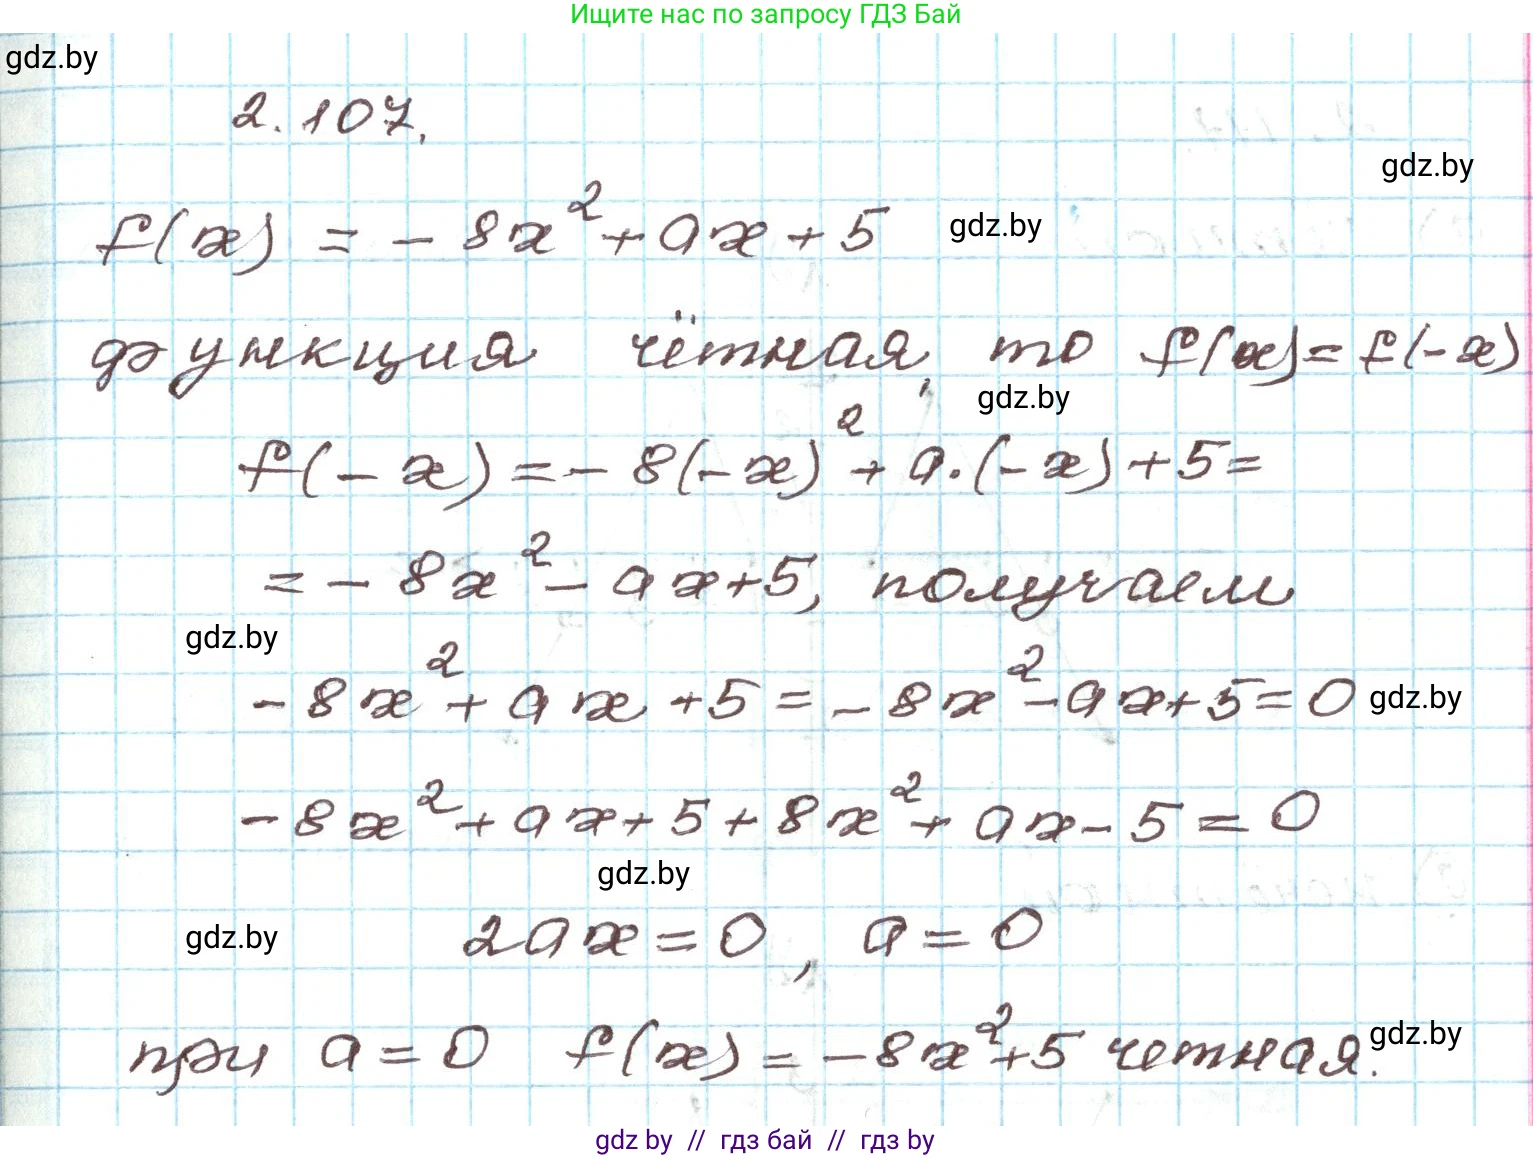 Ищите нас по запросу ГДЗ Бай
gdz.by
2.107.
gdz.by
f(x) = -8x² + ax + 5 gdz.by
функция чётная, то f(x) = f(-x)
gdz.by
f(-x) = -8(-x)² + a·(-x) + 5 =
= -8x² - ax + 5, получаем
gdz.by
-8x² + ax + 5 = -8x² - ax + 5 = 0 gdz.by
-8x² + ax + 5 + 8x² + ax - 5 = 0
gdz.by
gdz.by 2ax = 0, a = 0
при a = 0 f(x) = -8x² + 5 четная. gdz.by
gdz by // гдз бай // гдз by